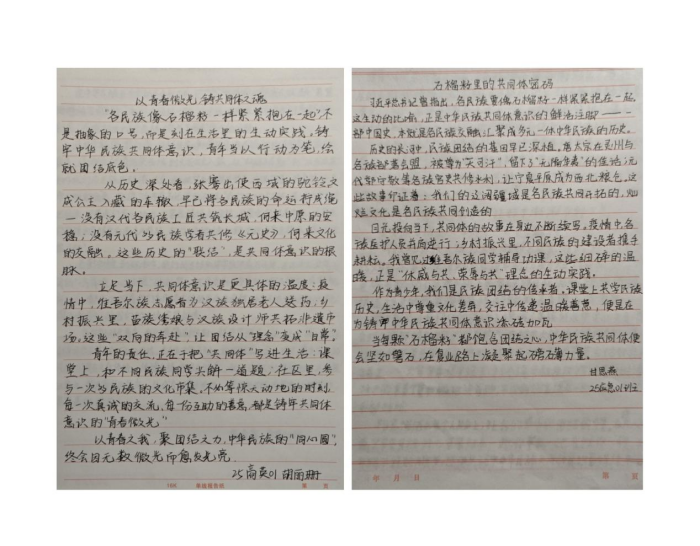 以青春微光,铸共同体之魂
"各民族像石榴籽一样紧紧抱在一起"不
是抽象的口号,而是刻在生活里的生动实践。铸
牢中华民族共同体意识,青年当以行动为笔,绘
就团结底色。
从历史深处看,张骞出使西域的驼铃,文
成公主入藏的车辙,早已将各民族的命运拧成绳
没有汉代各民族工匠共筑长城,何来中原的安
稳;没有元代各民族学者共修《元史》,何来文化
的交融。这些历史的"联结",是共同体意识的根
脉。
立足当下,共同体意识是更具体的温度:疫
情中,维吾尔族志愿者为汉族独居老人送药;乡
村振兴里,苗族绣娘与汉族设计师共拓非遗市
场,这些"双向的奔赴",让团结从"理念"变成"日常"。
青年的责任,正在于把"共同体"写进生活:课
堂上,和不同民族同学共解一道题;社区里,参
与一次多民族的文化市集。不必等惊天动地的时刻,
每一次真诚的交流,每一份互助的善意,都是铸牢共同体
意识的"青春微光"。
以青春之我,聚团结之力,中华民族的"同心圆",
终会因无数微光而愈发光亮。
25高英01 胡丽珊
石榴籽里的共同体密码
习近平总书记曾指出,各民族要像石榴籽一样紧紧抱在一起,
这生动的比喻,正是中华民族共同体意识的鲜活注脚——一
部中国史,本就是各民族交融汇聚成多元一体中华民族的历史。
历史的长河中,民族团结的基因早已深植,唐太宗在灵州与
各族部落会盟,被尊为"天可汗",留下了"无隔华裔"的佳话;元
代郭守敬等各族官吏共修水利,让宁夏平原成为西北粮仓,这
些故事印证着:我们的辽阔疆域是各民族共同开拓的,灿
烂文化是各民族共同创造的
目光投向当下,共同体的故事在身边不断续写。疫情中各
族医护人员并肩逆行;乡村振兴里,不同民族的建设者携手
耕耘。我曾见过维吾尔族同学辅导功课,这些细碎的温
暖,正是"休戚与共、荣辱与共"理念的生动实践。
作为青少年,我们是民族团结的传承者。课堂上共学民族
历史,生活中尊重文化差异,交往中传递温暖善意,便是在
为铸牢中华民族共同体意识添砖加瓦
当每颗"石榴籽"都饱含团结之心,中华民族共同体便
会坚如磐石,在复兴路上凝聚起磅礴力量。
甘思燕
年 月 日
第 页